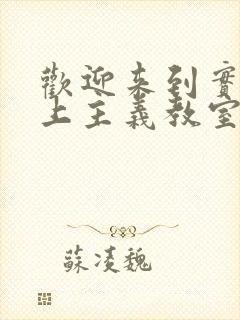 歡迎来到實
上主義教室
蘇凌魏